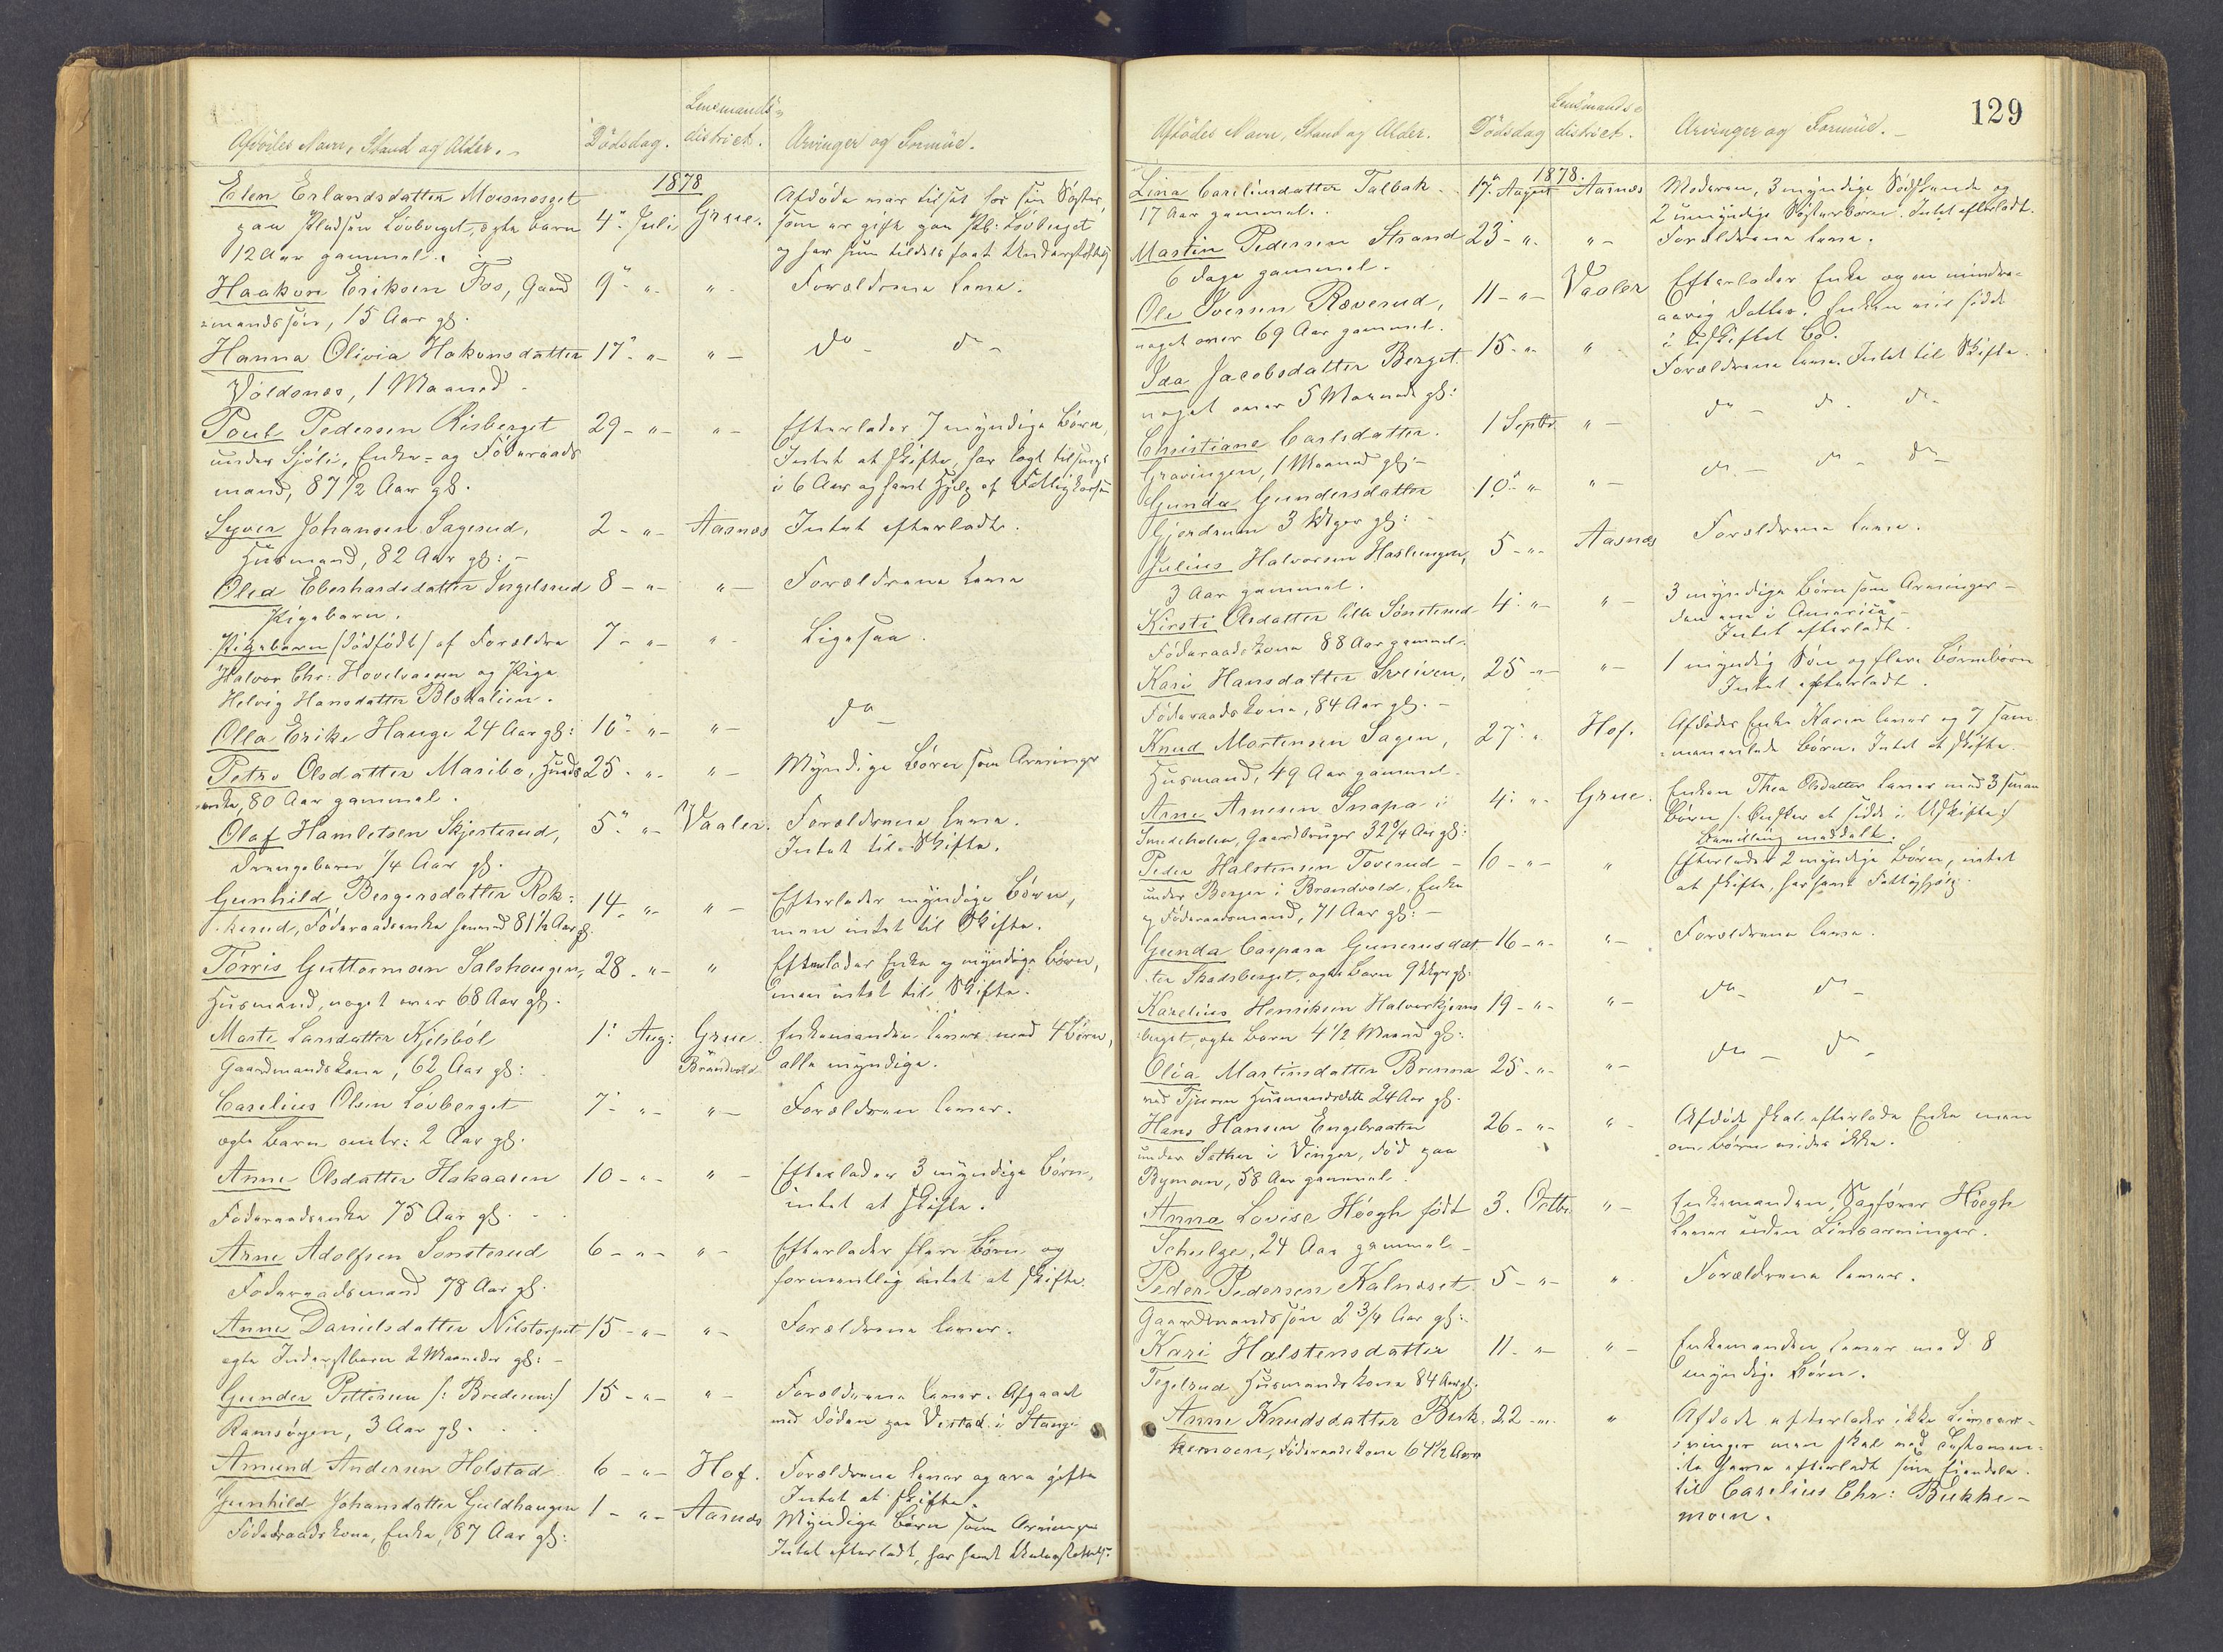 Lensmands-
Afdödes Navn, Stand og Alder.
Dödsdag.
district.
Arvinger og Formue.
1878
Elen Erlandsdatter Moesnæset
paa Pladsen Lövberget, egte Barn
12 Aar gammel.
4. Juli
Grue.
Afdöde var tilsat hos sin Söster,
som er gift paa Pl: Lövberget
og har hun tildels faaet Understöttelse
Haakon Eriksen Fos, Gaard
mandssön, 15 Aar gl.
9 - " -
" -
Forældrene leve.
Hanna Olivia Hakonsdatter
Voldsnæs, 1 Maaned
17 - " -
" -
do - do -
Poul Pedersen Risberget
under Sjöli, Enke- og Föderaads
mand, 87 1/2 Aar gl.
29 - " -
" -
Efterlader 7 myndige Börn,
Intet at skifte, har lagt tilsengs
i 6 Aar og havt Hjelp af Fattigkassen
Syver Johansen Sagerud,
Husmand, 82 Aar gl: -
2 - " -
Aasnæs
Intet efterladt.
Olea Eberhardsdatter Ingelsrud
Pigebarn.
8 - " -
" -
Forældrene leve
Pigebarn (dödfödt) af Forældre
Halvor Chr: Hovelsaasen og Pige
Helvig Hansdatter
7 - " -
" -
Ligesaa.
Olla Erike Hauge 24 Aar gl:
16 - " -
" -
do -
Petro Olsdatter Maribo, Husmds
enke, 80 Aar gammel.
25 - " -
" -
Myndige Börn som Arvinger
Olaf Hamletsen Skjesterud,
Drengebarn 1/4 Aar gl.
5 - " -
Vaaler.
Forældrene leve.
Intet til Skifte.
Gunhild Bergersdatter Rok-
kerud, Föderaadsenke henved 81 1/2 Aar gl.
14 - " -
" -
Efterlader myndige Börn,
men intet til Skifte.
Törris Guttormsen Salshougen,
Husmand, noget over 68 Aar gl.
28 - " -
"
Efterlader Enke og myndige Börn,
men intet til Skifte.
Marte Larsdatter Kjelsböl
Gaardmandskone, 62 Aar gl:
1. Aug:
Grue.
Brandvold
Enkemanden lever med 4 Börn,
alle myndige.
Carelius Olsen Lövberget
egte Barn omtr: 2 Aar gl.
7 - " -
" -
Forældrene lever.
Anne Olsdatter Hakaasen
Föderaadsenke 75 Aar gl.
10 - " -
" -
Efterlader 3 myndige Börn,
intet at skifte.
Arne Adolfsen Sönsterud
Föderaadsmand 78 Aar gl.
6 - " -
" -
Efterlader flere Börn og
formentlig intet at skifte.
Anne Danielsdatter Nilstorpet
egte Inderstbarn 2 Maaneder gl: -
15 - " -
" -
Forældrene lever.
Gunder Pettersen (: Bredesen:)
Ramsögen, 3 Aar gl.
15 - " -
" -
Forældrene lever. Afgaaet
ved Döden paa Vestad i Stange
Amund Andersen Holstad
6 - " -
Hof.
Forældrene lever og ere gifte
Intet at skifte.
Gunhild Johansdatter Guldhaugen
Föderaadskone, Enke, 87 Aar gl:
1 - " -
Aasnæs
Myndige Börn som Arvinger
Intet efterladt, har havt Understöttelse.
129
Lensmands-
Afdödes Navn, Stand og Alder.
Dödsdag
district.
Arvinger og Formue. -
1878.
Lina Careliusdatter Talbak
17 Aar gammel.
17. August
Aasnæs
Moderen, 3 myndige Södskende og
2 umyndige Sösterbörn. Intet efterladt.
Martin Pedersen Strand
6 Dage gammel.
23 - " -
" -
Forældrene leve.
Ole IversenRæverud,
noget over 69 Aar gammel.
11 - " -
Vaaler
Efterlader Enke og en mindre-
aarig Datter. Enken vil sidde
i uskiftet Bo.
Ida Jacobsdatter Berget.
noget over 5 Maaneder gl:
15 - " -
"
Forældrene leve. Intet til Skifte.
Christiane Carlsdatter.
Gravingen, 1 Maaned gl: -
1 Septbr
" -
do - do - do -
Gunda Gundersdatter
Gjerdrum 3 Uger gl: -
10 - " -
" -
do - do - do -
Julius Halvorsen Haslungen,
3 Aar gammel.
5 - " -
Aasnæs
Forældrene leve.
Kirsti Olsdatter lille Sönsterud
Föderaadskone 88 Aar gammel.
4 - " -
" -
3 myndige Börn som Arvinger -
den ene i America -
Intet efterladt.
Kari Hansdatter Sveiven,
Föderaadskone, 84 Aar gl. -
25 - " -
" -
1 myndig Sön og flere Börnebörn
Intet efterladt.
Knud Mortensen Sagen,
Husmand, 49 Aar gammel.
27 - "
Hof.
Afdödes Enke Karen lever og 7 sam-
menavlede Börn. Intet at skifte.
Arne Arnesen Snapa i
Smedeholen, Gaardbruger 32 3/4 Aar gl:
4 - " -
Grue.
Enken Thea Olsdatter lever med 3 smaa
Börn (: Önsker at sidde i Uskifte:)
Bevilling meddelt.
Peder Halstensen Toverud -
under Berger i Brandvold. Enke
og Föderaadsmand, 71 Aar gl: -
10 - " -
"
Efterlader 2 myndige Börn, intet
at skifte, har havt Fattighjelp.
Gunda Caspara Gunerusdat-
ter Skadsberget, egte Barn 9 Uger gl.
16 - " -
" -
Forældrene leve.
Karelius Henriksen Halvorkjerns
berget, egte Barn 4 1/2 Maaned gl:
19 - " -
" -
do - do -
Olea Martinsdatter Brenna
ved Tjuren Husmandsdatter 24 Aar gl.
25 - " -
" -
do - do -
Hans Hansen Engebraaten
under Sæther i Vinger, död paa
Bymoen, 58 Aar gammel.
26 - " -
" -
Afdöde skal efterlade Enke men
om Börn vides ikke.
Anna Lovise Höegh födt
Schulze, 24 Aar gammel -
3. Octbr.
" -
Enkemanden, Sagförer Höegh
lever uden Livsarvinger.
Peder Pedersen Kalnæset
Gaardmandssön 2 3/4 Aar gl:
5 - " -
"
Forældrene lever.
Kari Halstensdatter
Tegelsrud, Husmandskone 84 Aar gl.
11 - " -
" -
Enkemanden lever med 8
myndige Börn.
Anne Knudsdatter Buk-
kemoen, Föderaadskone 64 1/2 Aar
22 - " -
"
Afdöde efterlader ikke Livsar-
vinger men skal ved Testamen-
te have efterladt sine Eiendele
til Carelius Chr: Bukke-
moen.